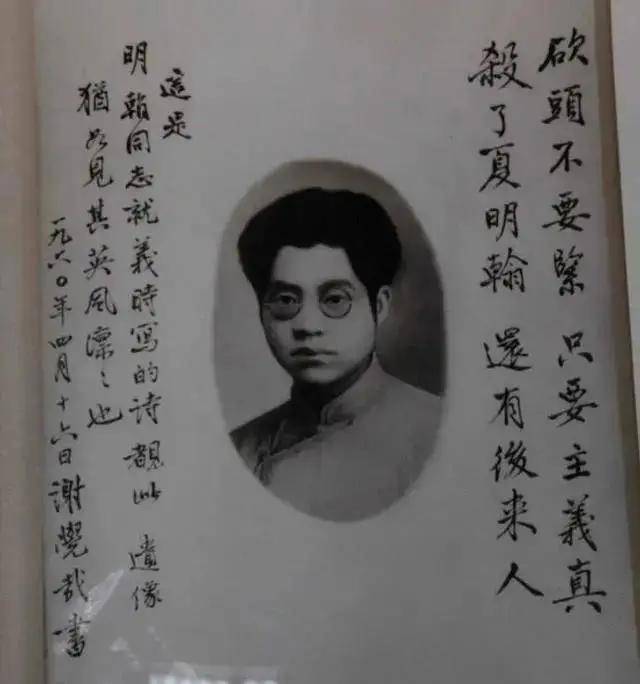 砍頭不要緊 只要主義真
殺了夏明翰 還有後来人
這是
明翰同志就義時寫的诗 覩此 遺像
猶如見其英風凛々也
一九六〇年四月十六日 谢觉哉書